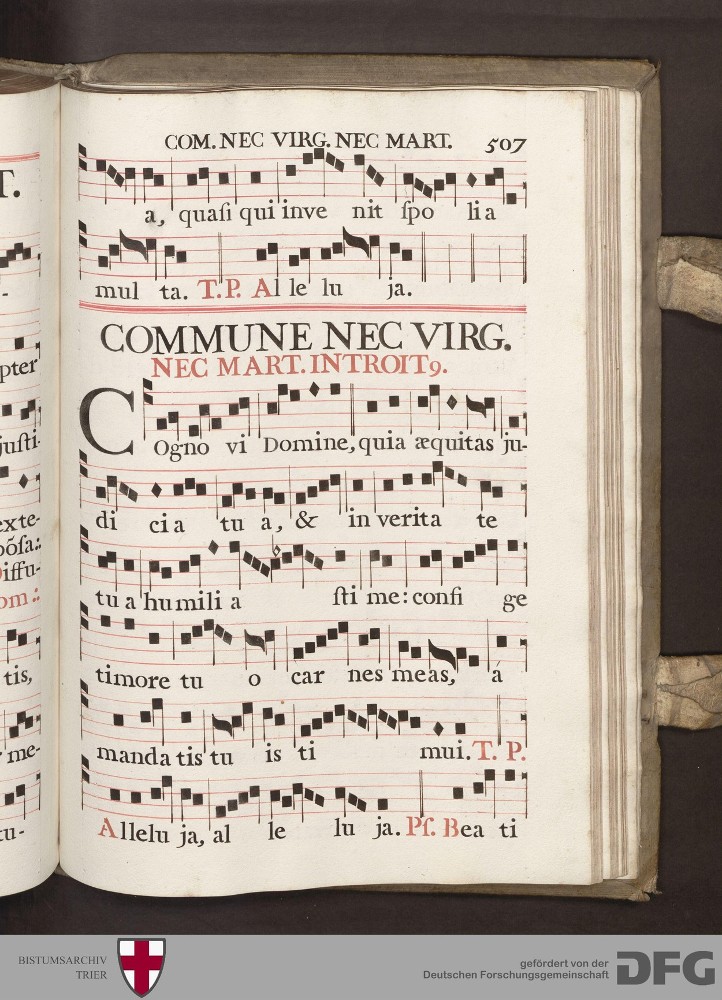 COM. NEC VIRG. NEC MART. 507
a, quaſi qui inve nit ſpo lia
mul ta. T. P. Al le lu ja.
COMMUNE NEC VIRG.
NEC MART. INTROIT9.
COgno vi Domine, quia æquitas ju-
di cia tu a, & in verita te
tu a humili a ſti me: confi ge
timore tu o car nes meas, á
manda tis tu is ti mui. T. P.
Allelu ja, al le lu ja. Pſ. Bea ti
T.
-
pter
juſti-
exte-
põſa:.
Diffu-
om:.
tis,
me-
tu-
BISTUMSARCHIV
TRIER
gefördert von der
Deutschen Forschungsgemeinschaft
DFG